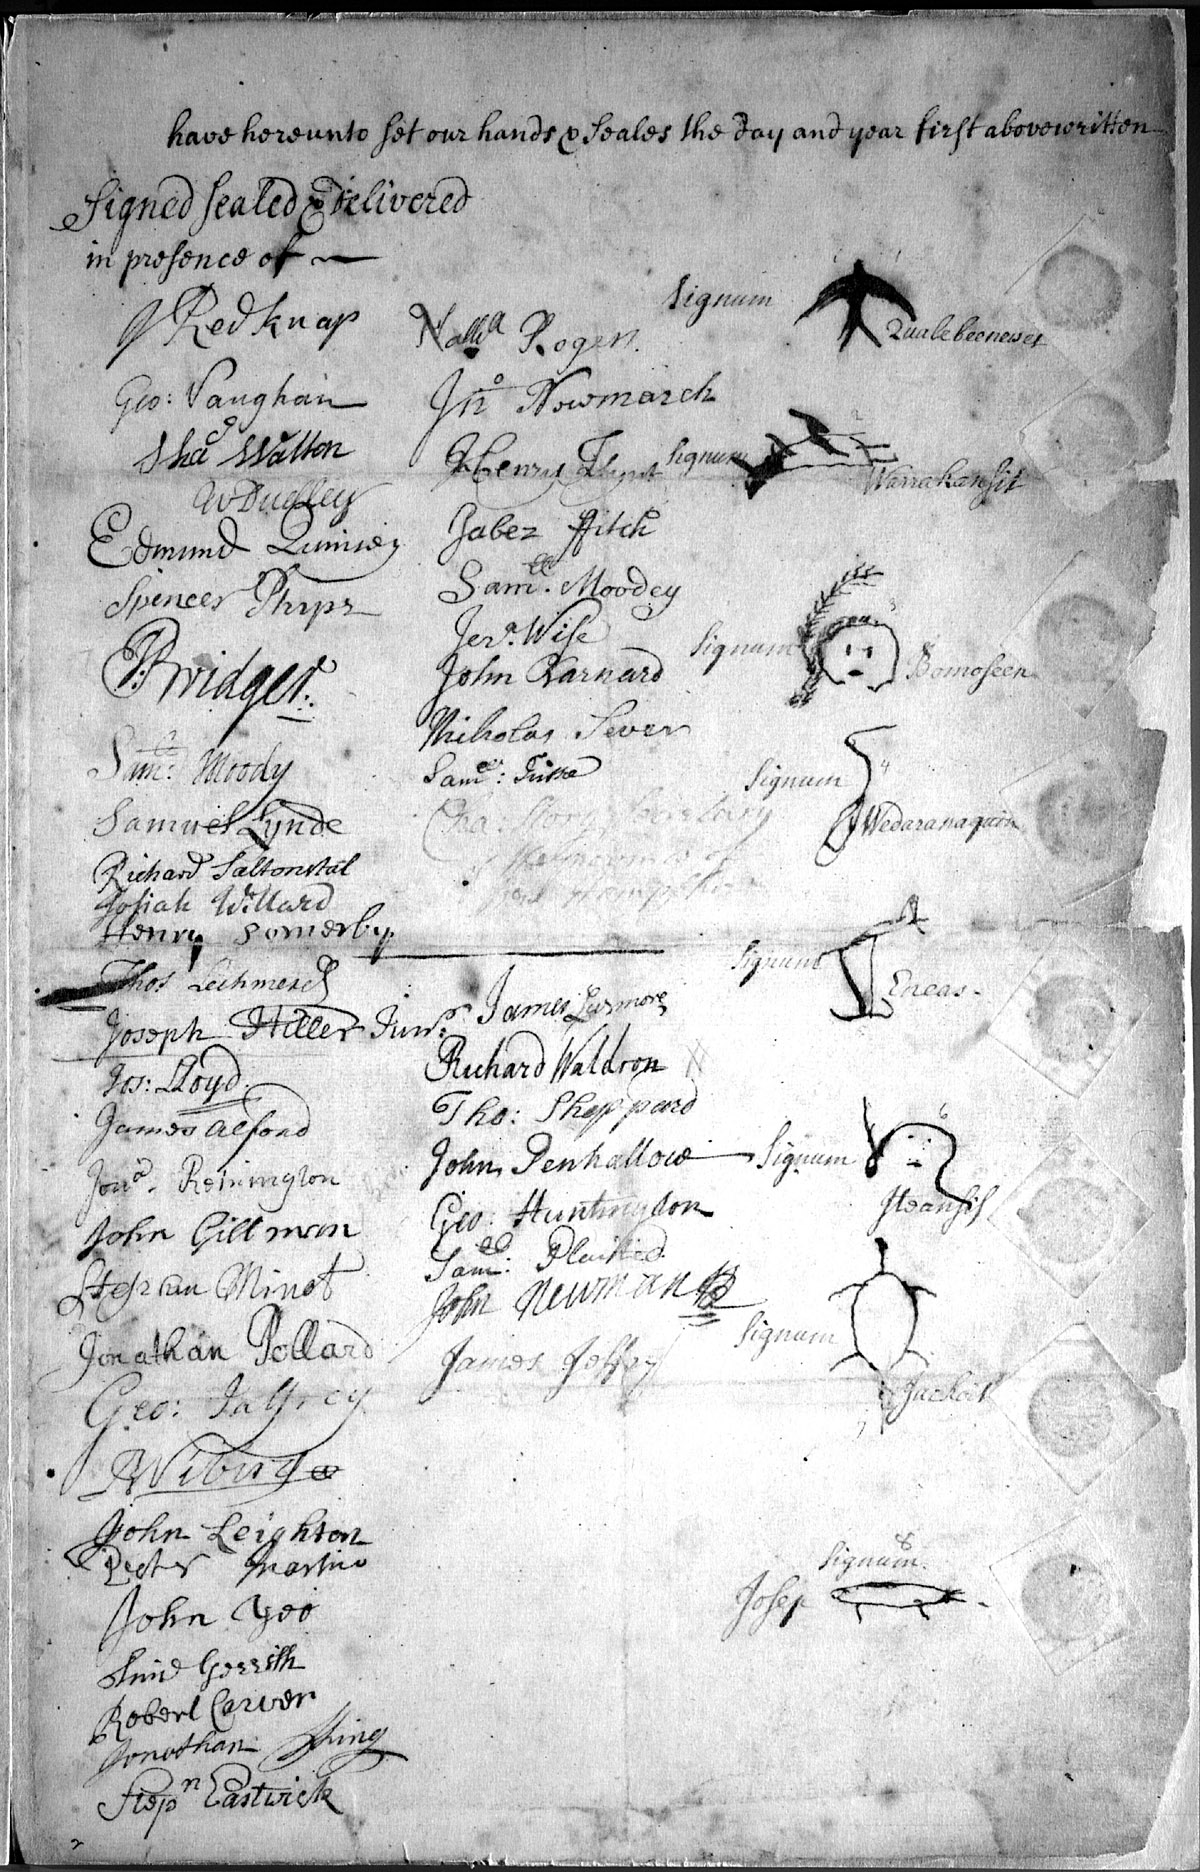 have hereunto set our hands & Seales the Day and year first abovewritten
Signed sealed & Delivered
in presence of
J Redknap
Geo: Vaughan
Shad Walton
Edmund Quincey
Spencer Phips
J: Bridger:
Samll: Moody
Samuel Lynde
Richard Saltonstal
Josiah Willard
Henry Somerby
Thos Lechmere
Joseph Hiller Junr:
Jos: Lloyd.
James Alford
Jona. Remington
John Gillman
Stephen Minot
Jonathan Pollard
Geo: Jaffrey
RWibird
John Leighton
John Yeo
Robert Carver
Jonothan
Stepn Eastwick
Rogers.
Jno Newmarch
Henry Flynt
Jabez Fitch
Samll. Moodey
Jera. Wise
John Barnard
Nicholas Sever
Samll:
Cha: Story Secretary
of
New Hampshire
James
Richard Waldron
Tho: Sheppard
John Penhallow
Geo: Huntington
Samll: Plaisted
John Newman
James Jeffry
Signum Qualebeenewes
Signum Warrakansit
Signum Bomoseen
Signum 4 Wedaranaquin
Signum Eneas
Signum 6 Iteansis
Signum Jackoit
8
Signum.
Josep